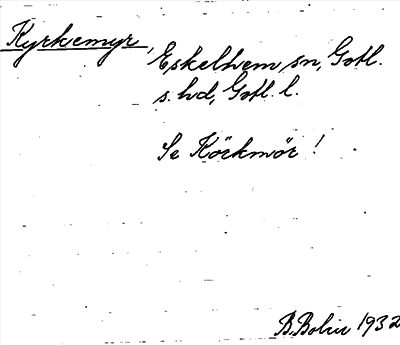 Kyrkemyr,
Eskelhem sn, Gotl.
s. hd, Gotl. l.
Se Körkmör !
B. Bolin 1932